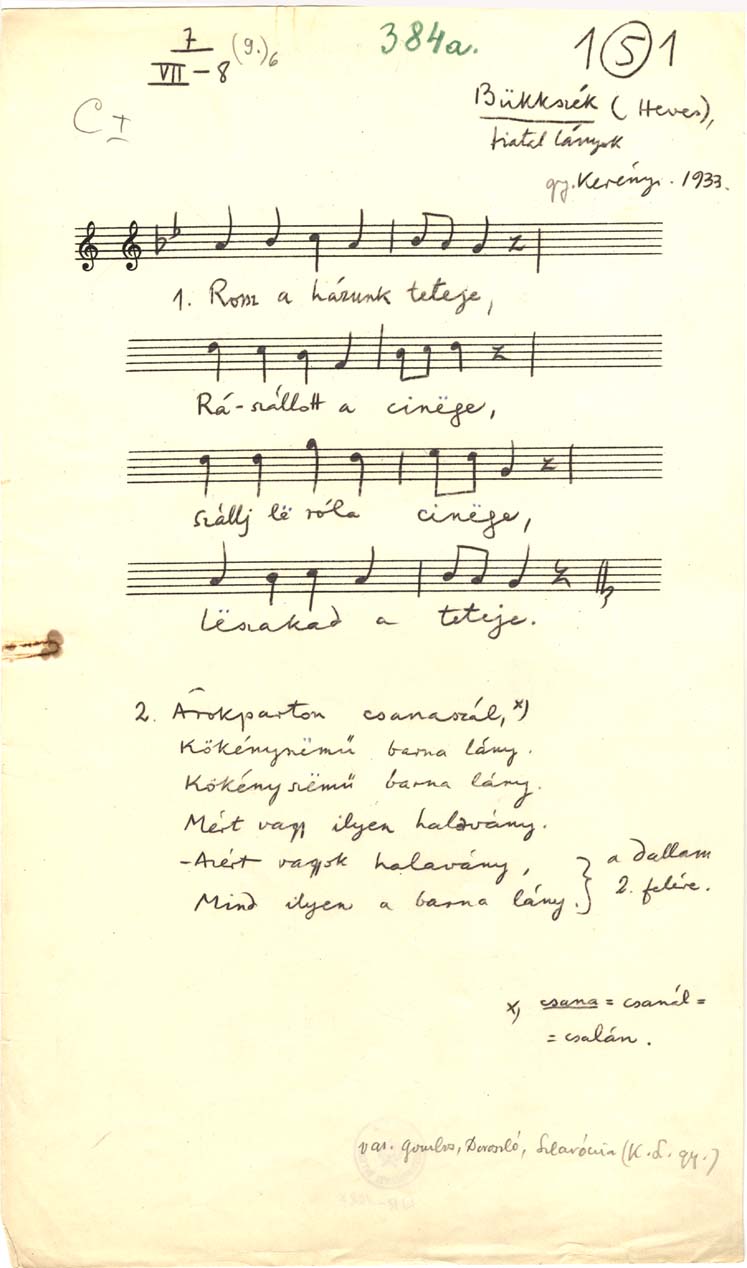 7 (9.)6
VII - 8
384a.
1 5 1
C I
Bükkszék (Heves),
fiatal lányok
gy. Kerényi. 1933.
1. Rossz a házunk teteje,
Rá-szállott a cinëge,
szállj lë róla cinëge,
Lëszakad a teteje.
2. Árokparton csanaszál, x)
Kökényszëmű barna lány.
Kökényszëmű barna lány.
Mért vagy ilyen halavány.
- Azért vagyok halavány,
Mind ilyen a barna lány.
} a dallam
2. felére.
x) csana = csanál =
= csalán.
var. Gombos, Doroszló, Szlavónia (K. L. gy.)